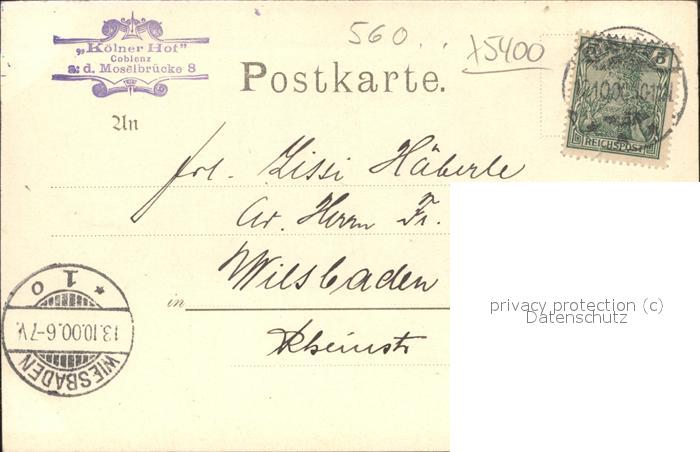 560..
x5400
„Kölner Hof"
Coblenz
a. d. Moselbrücke 8
Postkarte.
5
REICHSPOST
An
Frl. Lissi Häberle
Hrrn Fr.
Wiesbaden
in
Rheinstr
* 1 o
13.10.00.6-7V.
WIESBADEN
privacy protection (c)
Datenschutz